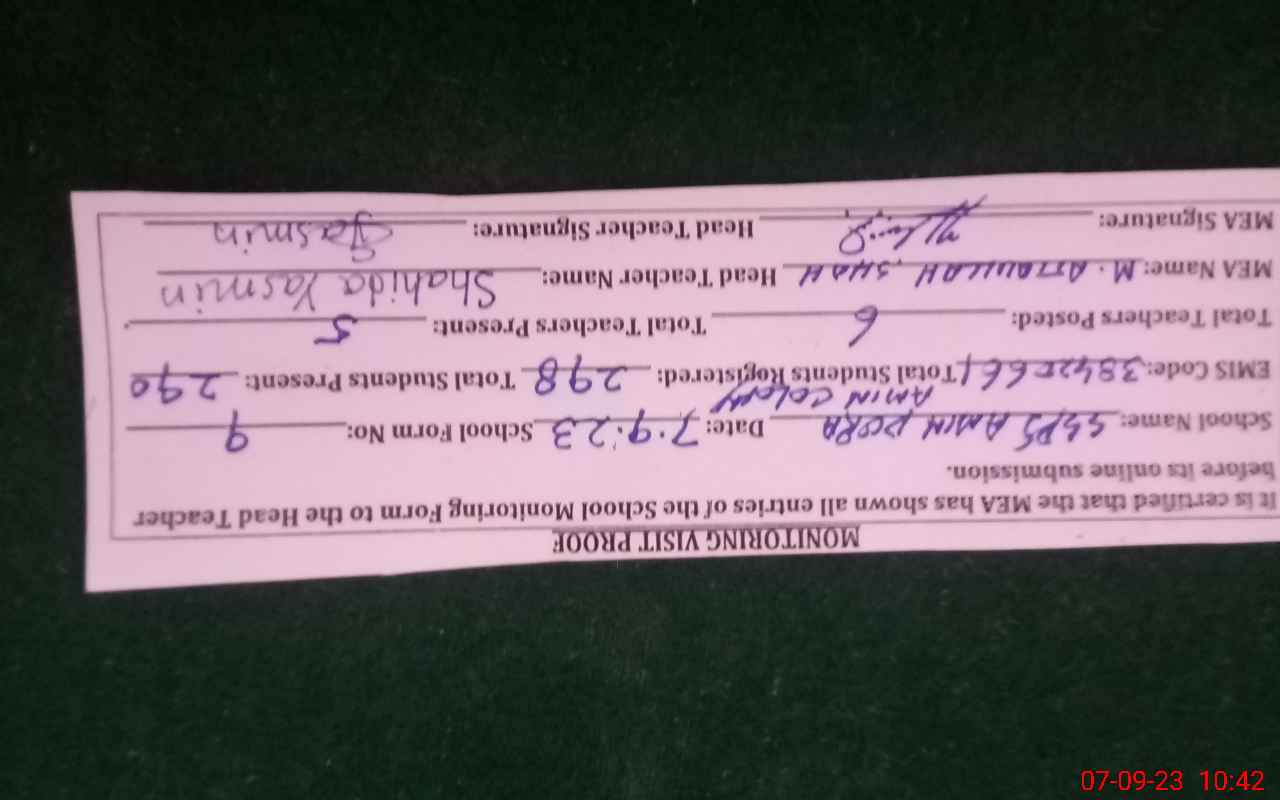 MONITORING VISIT PROOF
It is certified that the MEA has shown all entries of the School Monitoring Form to the Head Teacher
before its online submission.
School Name: SSPS AMIN PORA AMIN COLONY Date: 7.9.23 School Form No: 9
EMIS Code: 38420661 Total Students Registered: 298 Total Students Present: 290
Total Teachers Posted: 6 Total Teachers Present: 5
MEA Name: M. ATTAULLAH SHAH Head Teacher Name: Shahida Yasmin
MEA Signature: Head Teacher Signature: Yasmin
07-09-23 10:42